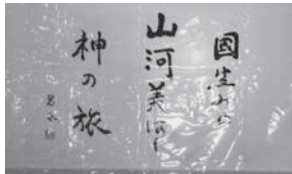 國生みの
山河美はし
神の旅